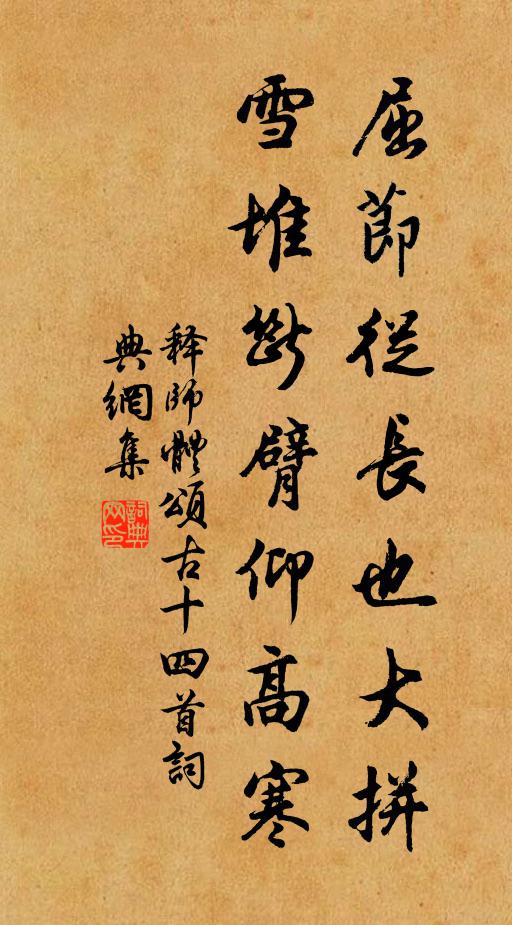 屈節從長也大拼
雪堆斷臂仰高寒
释師體頌古十四首詞
典網集
詞典网印